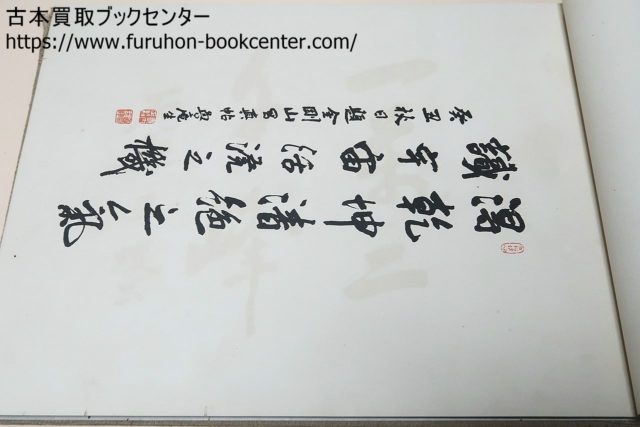 古本買取ブックセンター
https://www.furuhon-bookcenter.com/
乾坤清絶之氣
宇宙活之機
癸丑秋日題金剛山冩真帖